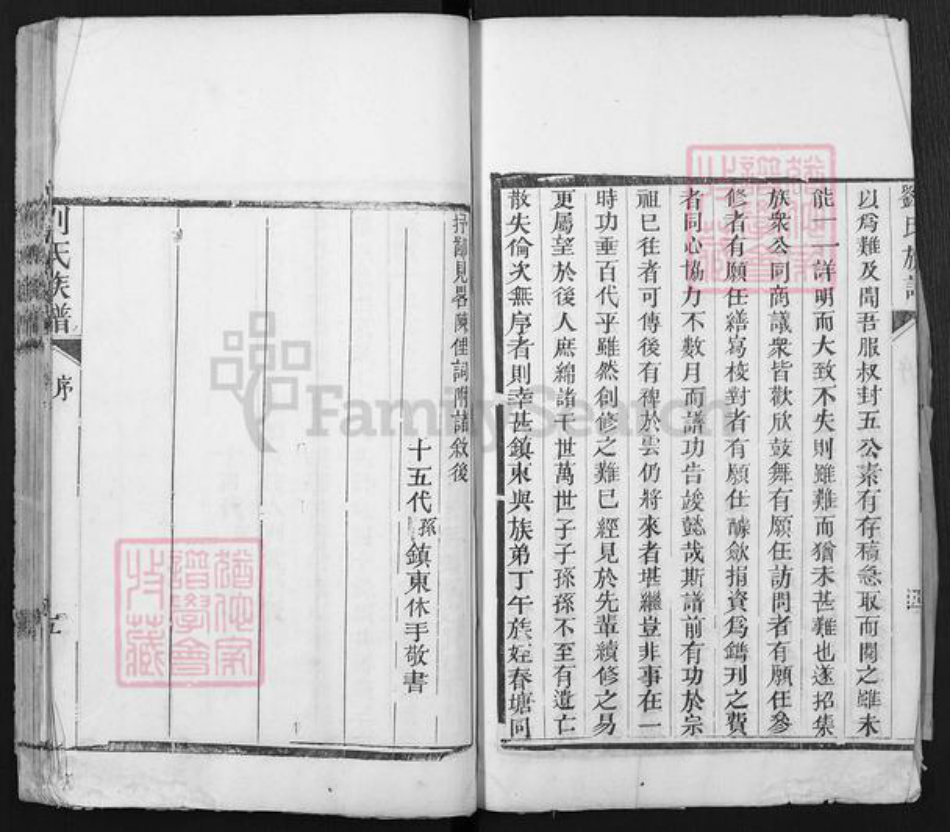 劉氏族譜
以爲難及聞吾服叔封五公素有存稿急取而閱之雖未
能一一詳明而大致不失則雖難而猶未甚難也遂招集
族衆公同商議衆皆歡欣鼓舞有願任訪問者有願任參
修者有願任繕寫校對者有願任醵歛捐資爲鐫刊之費
者同心協力不數月而譜功告竣懿哉斯譜前有功於宗
祖已往者可傳後有裨於雲仍將來者堪繼豈非事在一
時功垂百代乎雖然創修之難已經見於先輩續修之易
更屬望於後人庶綿諸千世萬世子子孫孫不至有遺亡
散失倫次無序者則幸甚鎮東與族弟丁午族姪春塘同
抒鄙見畧陳俚詞附諸敘後
十五代孫鎮東休手敬書
劉氏族譜
序
FamilySearch
譜學會
收藏